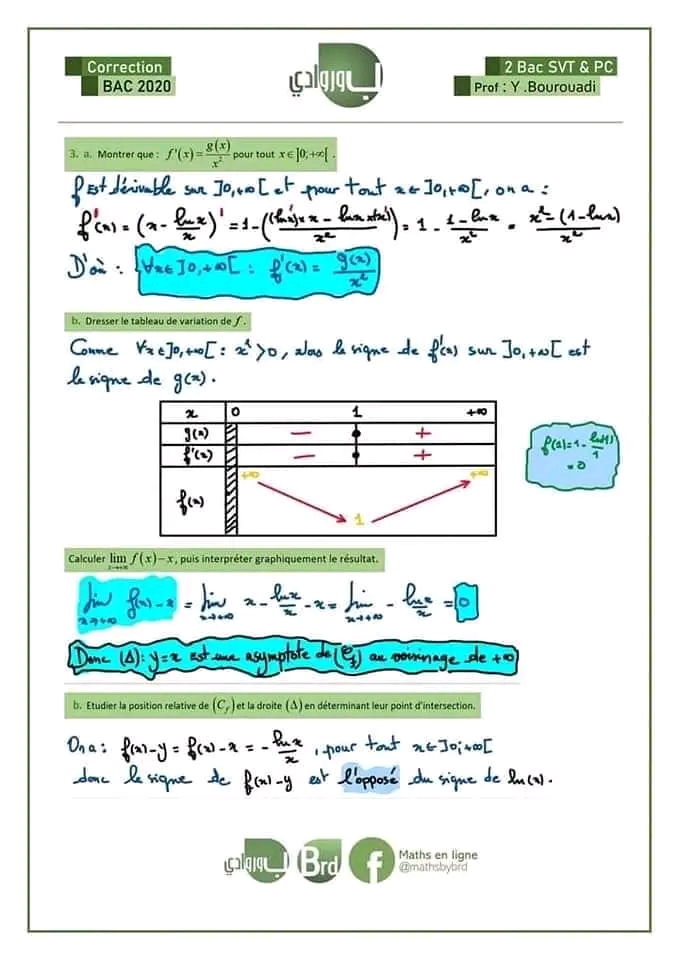 Correction
BAC 2020
بوروادي
2 Bac SVT & PC
Prof : Y .Bourouadi
3. a. Montrer que : f'(x) = g(x)/x² pour tout x ∈ ]0;+∞[ .
f Est dérivable sur ]0,+∞[ et pour tout x ∈ ]0,+∞[, on a :
f'(x) = (x - lnx/x)' = 1 - ((lnx)'×x - lnx×(x)')/x² = 1 - (1-lnx)/x² = (x² - (1-lnx))/x²
D'où : ∀x∈ ]0,+∞[ : f'(x) = g(x)/x²
b. Dresser le tableau de variation de f .
Comme ∀x∈]0,+∞[ : x² > 0 , alors le signe de f'(x) sur ]0,+∞[ est
le signe de g(x) .
x 0 1 +∞
g(x) − +
f'(x) − +
f(x) +∞ 1 +∞
f(1)=1 - ln(1)/1
= 0
Calculer lim x→+∞ f(x)−x, puis interpréter graphiquement le résultat.
lim x→+∞ f(x) - x = lim x→+∞ x - lnx/x - x = lim x→+∞ - lnx/x = 0
Donc (Δ): y=x est une asymptote de (Cf) au voisinage de +∞
b. Etudier la position relative de (Cf) et la droite (Δ) en déterminant leur point d'intersection.
On a : f(x)-y = f(x)-x = - lnx/x , pour tout x∈]0;+∞[
donc le signe de f(x)-y est l'opposé du signe de ln(x) .
بوروادي
Brd
f
Maths en ligne
@mathsbybrd